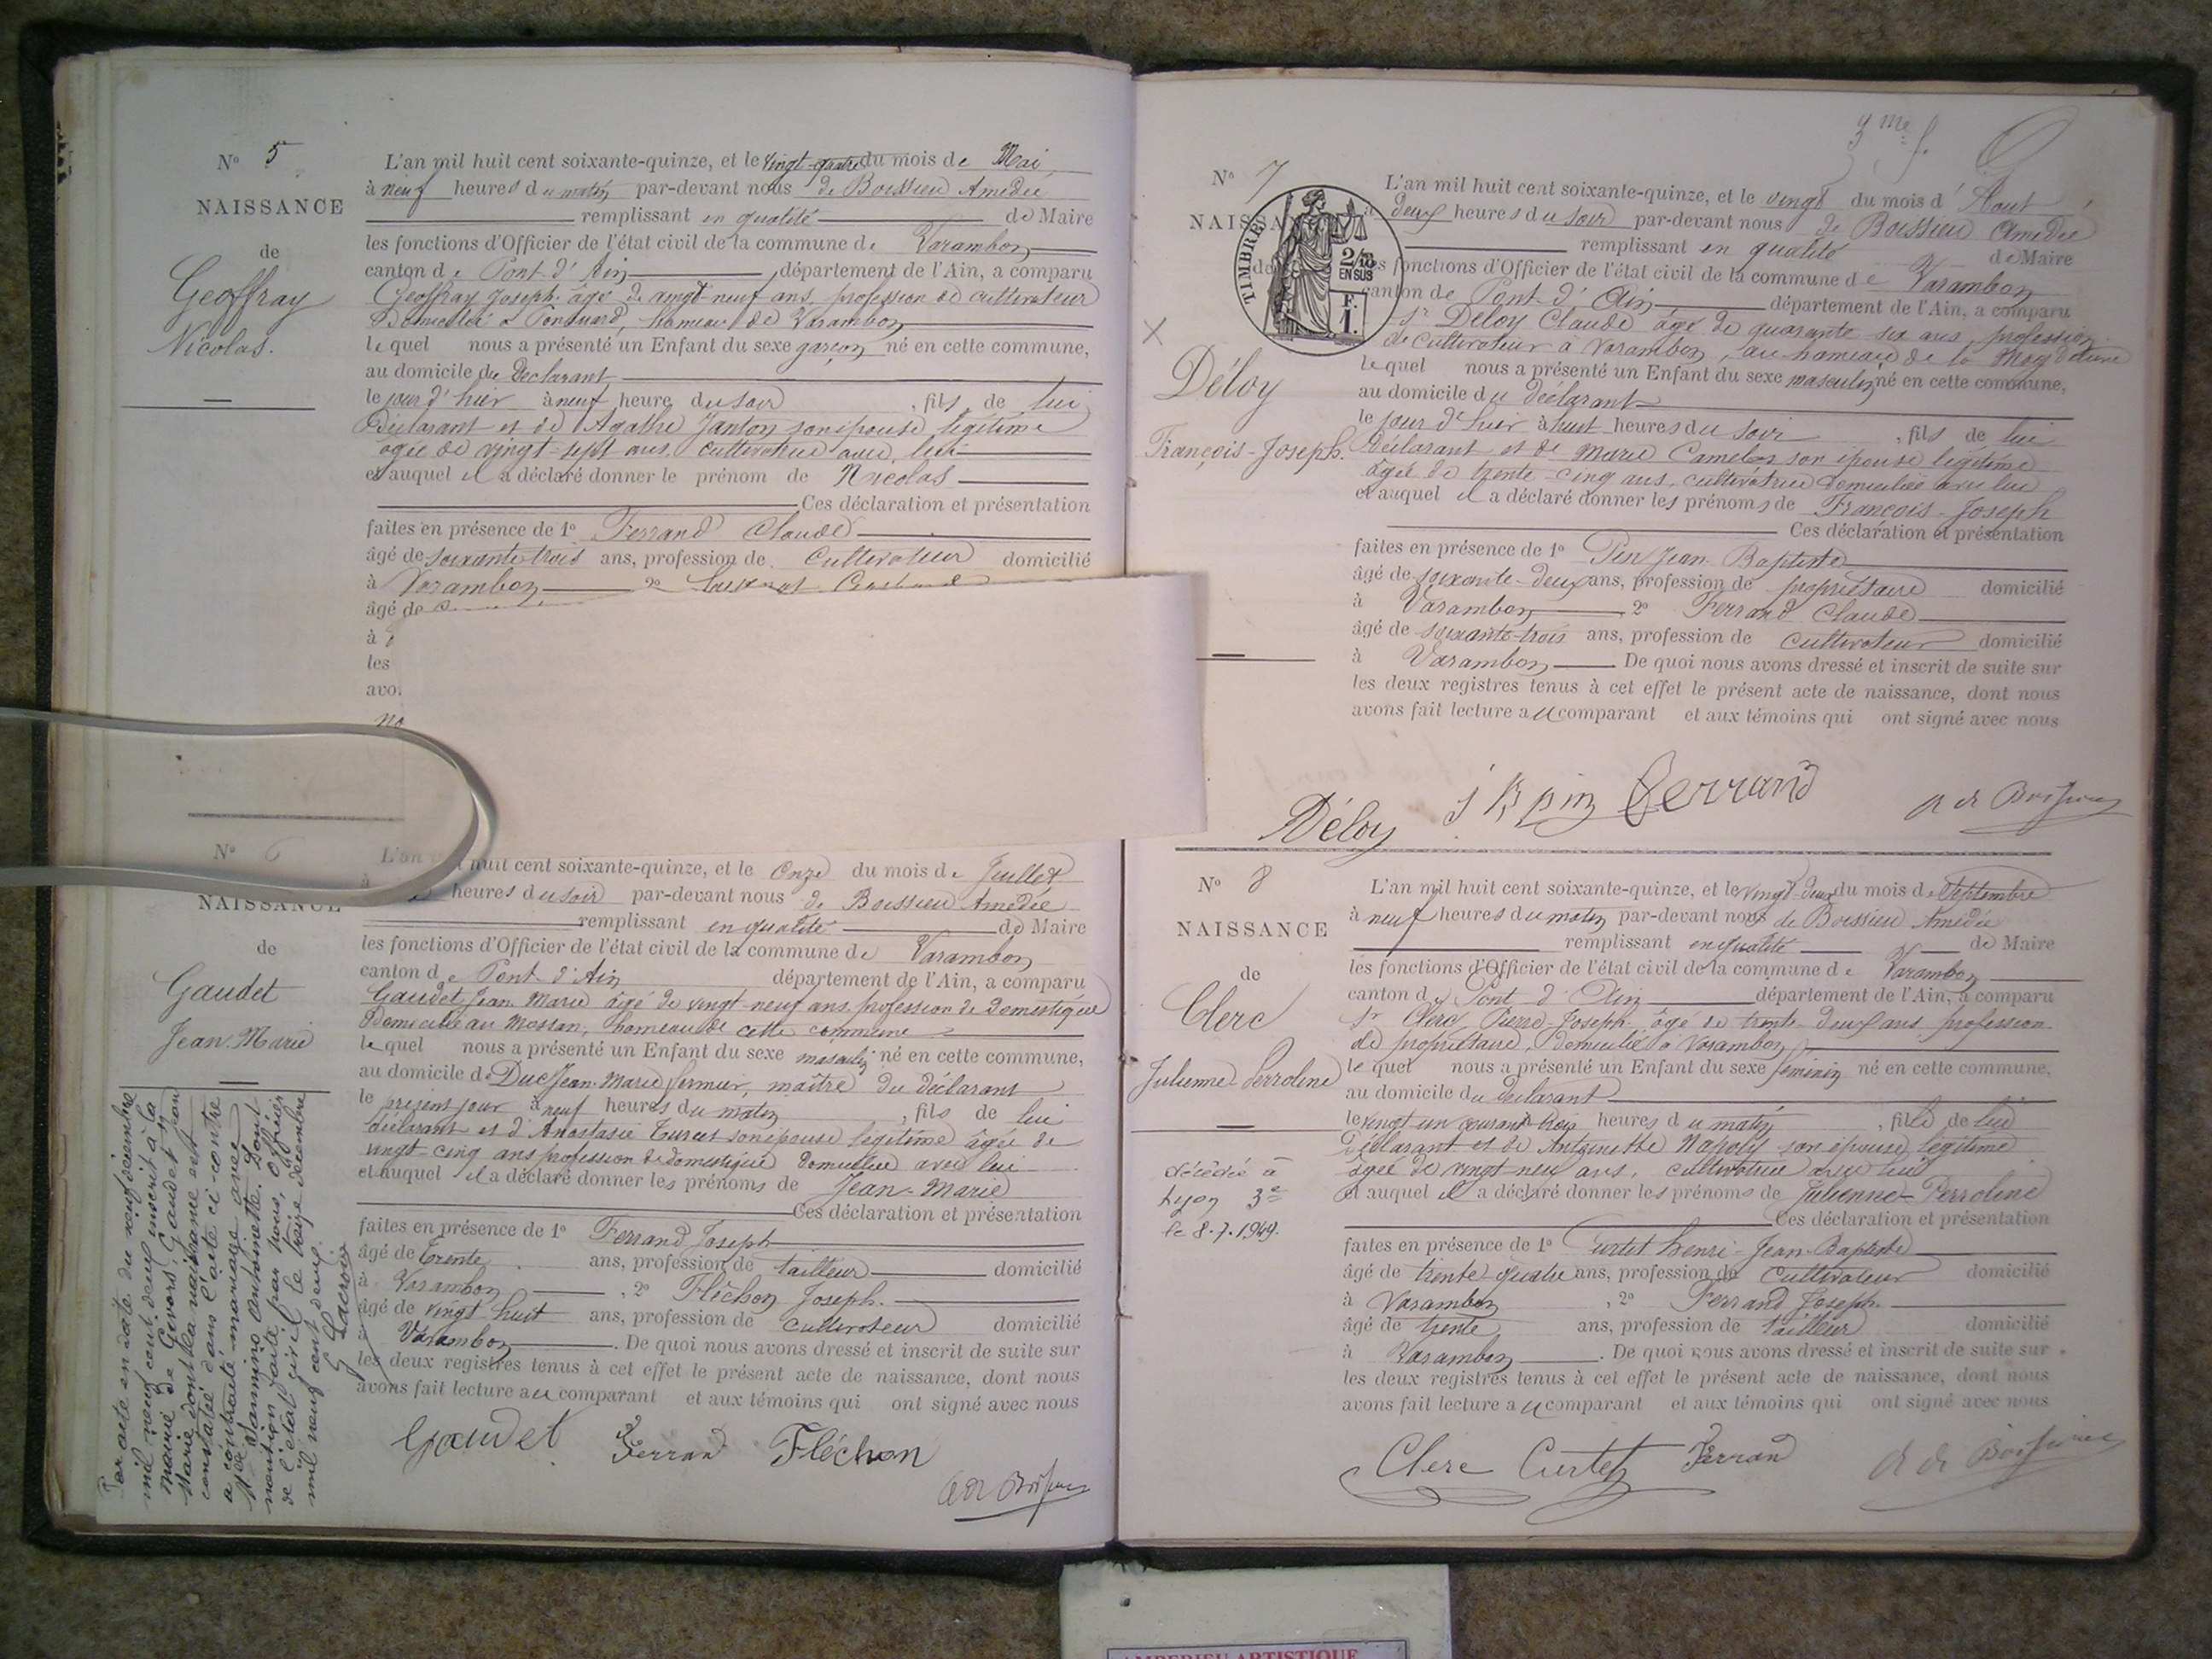 N° 5
NAISSANCE
de
Geoffray
Nicolas.
L'an mil huit cent soixante-quinze, et le vingt-quatre du mois de Mai
à neuf heures du matin par-devant nous de Boissieu Amédée
remplissant en qualité de Maire
les fonctions d'Officier de l'état civil de la commune de Varambon
canton de Pont-d'Ain, département de l'Ain, a comparu
Geoffray Joseph âgé de vingt-neuf ans, profession de cultivateur
domicilié à hameau de Varambon
lequel nous a présenté un Enfant du sexe garçon né en cette commune,
au domicile du Déclarant
le jour d'hier à neuf heure du soir, fils de lui
Déclarant et de Agathe Janton son épouse légitime
âgée de vingt-sept ans. cultivatrice avec lui
et auquel il a déclaré donner le prénom de Nicolas
Ces déclaration et présentation
faites en présence de 1° Ferrand Claude
âgé de soixante-trois ans, profession de cultivateur domicilié
à Varambon 2°
âgé de
à
les
avo
no
N° 6
NAISSANCE
de
Gaudet
Jean-Marie
L'an huit cent soixante-quinze, et le onze du mois de Juillet
heures du soir par-devant nous de Boissieu Amédée
remplissant en qualité de Maire
les fonctions d'Officier de l'état civil de la commune de Varambon
canton de Pont-d'Ain département de l'Ain, a comparu
Gaudet Jean Marie âgé de vingt-neuf ans profession de domestique
Domicilié au Mossan, hameau de cette commune
lequel nous a présenté un Enfant du sexe masculin né en cette commune,
au domicile de Duc Jean-Marie fermier, maître du déclarant
le présent jour à neuf heures du matin, fils de lui
déclarant et d'Anastasie Turcet son épouse légitime âgée de
vingt-cinq ans profession de domestique domiciliée avec lui
et auquel il a déclaré donner les prénoms de Jean-Marie
Ces déclaration et présentation
faites en présence de 1° Ferrand Joseph
âgé de trente ans, profession de tailleur domicilié
à Varambon, 2° Fléchon Joseph.
âgé de vingt huit ans, profession de cultivateur domicilié
Varambon. De quoi nous avons dressé et inscrit de suite sur
les deux registres tenus à cet effet le présent acte de naissance, dont nous
avons fait lecture au comparant et aux témoins qui ont signé avec nous
Gaudet Ferrand Fléchon
A de Boissieu
Par acte en date du neuf décembre
mil neuf cent deux inscrit à la
mairie de Givors, Gaudet Jean
Marie dont la naissance est
constatée dans l'acte ci-contre
a contracté mariage avec
Mlle Vannino Antoinette. Dont
mention faite par nous, officier
de l'état civil le treize décembre
mil neuf cent deux.
G Lacroix
3me f.
N° 7
NAISSAN
de
TIMBRES
2/10
EN SUS
F.
1.
X
Déloy
François-Joseph.
L'an mil huit cent soixante-quinze, et le vingt du mois d'Aout
à deux heures du soir par-devant nous de Boissieu Amédée
remplissant en qualité de Maire
les fonctions d'Officier de l'état civil de la commune de Varambon
canton de Pont-d'Ain département de l'Ain, a comparu
Sr Déloy Claude âgé de quarante six ans, profession
de cultivateur à Varambon, au hameau de la
lequel nous a présenté un Enfant du sexe masculin né en cette commune,
au domicile du déclarant
le jour d'hier à huit heures du soir, fils de lui
Déclarant et de Marie Camelon son épouse légitime
âgée de trente-cinq ans, cultivatrice domiciliée avec lui
et auquel il a déclaré donner les prénoms de François-Joseph
Ces déclaration et présentation
faites en présence de 1° Pin Jean-Baptiste
âgé de soixante-deux ans, profession de propriétaire domicilié
à Varambon 2° Ferrand Claude
âgé de soixante-trois ans, profession de cultivateur domicilié
à Varambon. De quoi nous avons dressé et inscrit de suite sur
les deux registres tenus à cet effet le présent acte de naissance, dont nous
avons fait lecture au comparant et aux témoins qui ont signé avec nous
Déloy J B pin Ferrand A de Boissieu
N° 8
NAISSANCE
de
Clerc
Julienne Perroline
décédée à
Lyon 3e
le 8.7.1949.
L'an mil huit cent soixante-quinze, et le vingt-deux du mois de Septembre
à neuf heures du matin par-devant nous de Boissieu Amédée
remplissant en qualité de Maire
les fonctions d'Officier de l'état civil de la commune de Varambon
canton de Pont-d'Ain département de l'Ain, a comparu
Sr Clerc Pierre-Joseph âgé de trente-deux ans profession
de propriétaire, domicilié à Varambon
le quel nous a présenté un Enfant du sexe féminin né en cette commune,
au domicile du déclarant
le vingt un courant trois heures du matin, fille de lui
Déclarant et de Antoinette Napoly son épouse légitime
âgée de vingt neuf ans, cultivatrice avec lui
et auquel il a déclaré donner les prénoms de Julienne-Perroline
Ces déclaration et présentation
faites en présence de 1° Curtet Henri-Jean-Baptiste
âgé de trente quatre ans, profession de cultivateur domicilié
à Varambon, 2° Ferrand Joseph
âgé de trente ans, profession de tailleur domicilié
à Varambon. De quoi nous avons dressé et inscrit de suite sur
les deux registres tenus à cet effet le présent acte de naissance, dont nous
avons fait lecture au comparant et aux témoins qui ont signé avec nous
Clerc Curtet Ferrand A de Boissieu